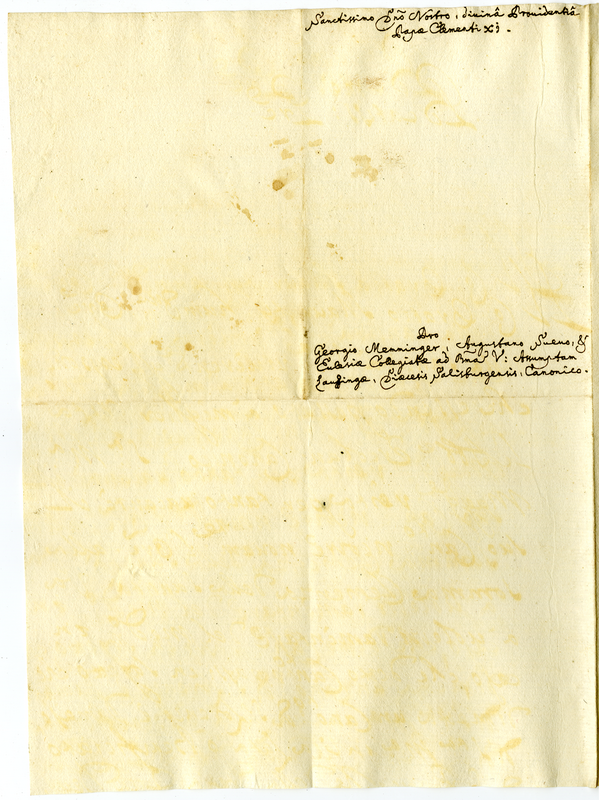 Sanctissimo Dño Nostro, divinâ Providentiâ
Papæ Clementi XI.
Pro
Georgio Menninger, Augustano Suevo, &
Eclesiæ Collegiatæ ad Bmã V: Assumptam
Lauffingæ, Diæcesis Salisburgensis, Canonico.